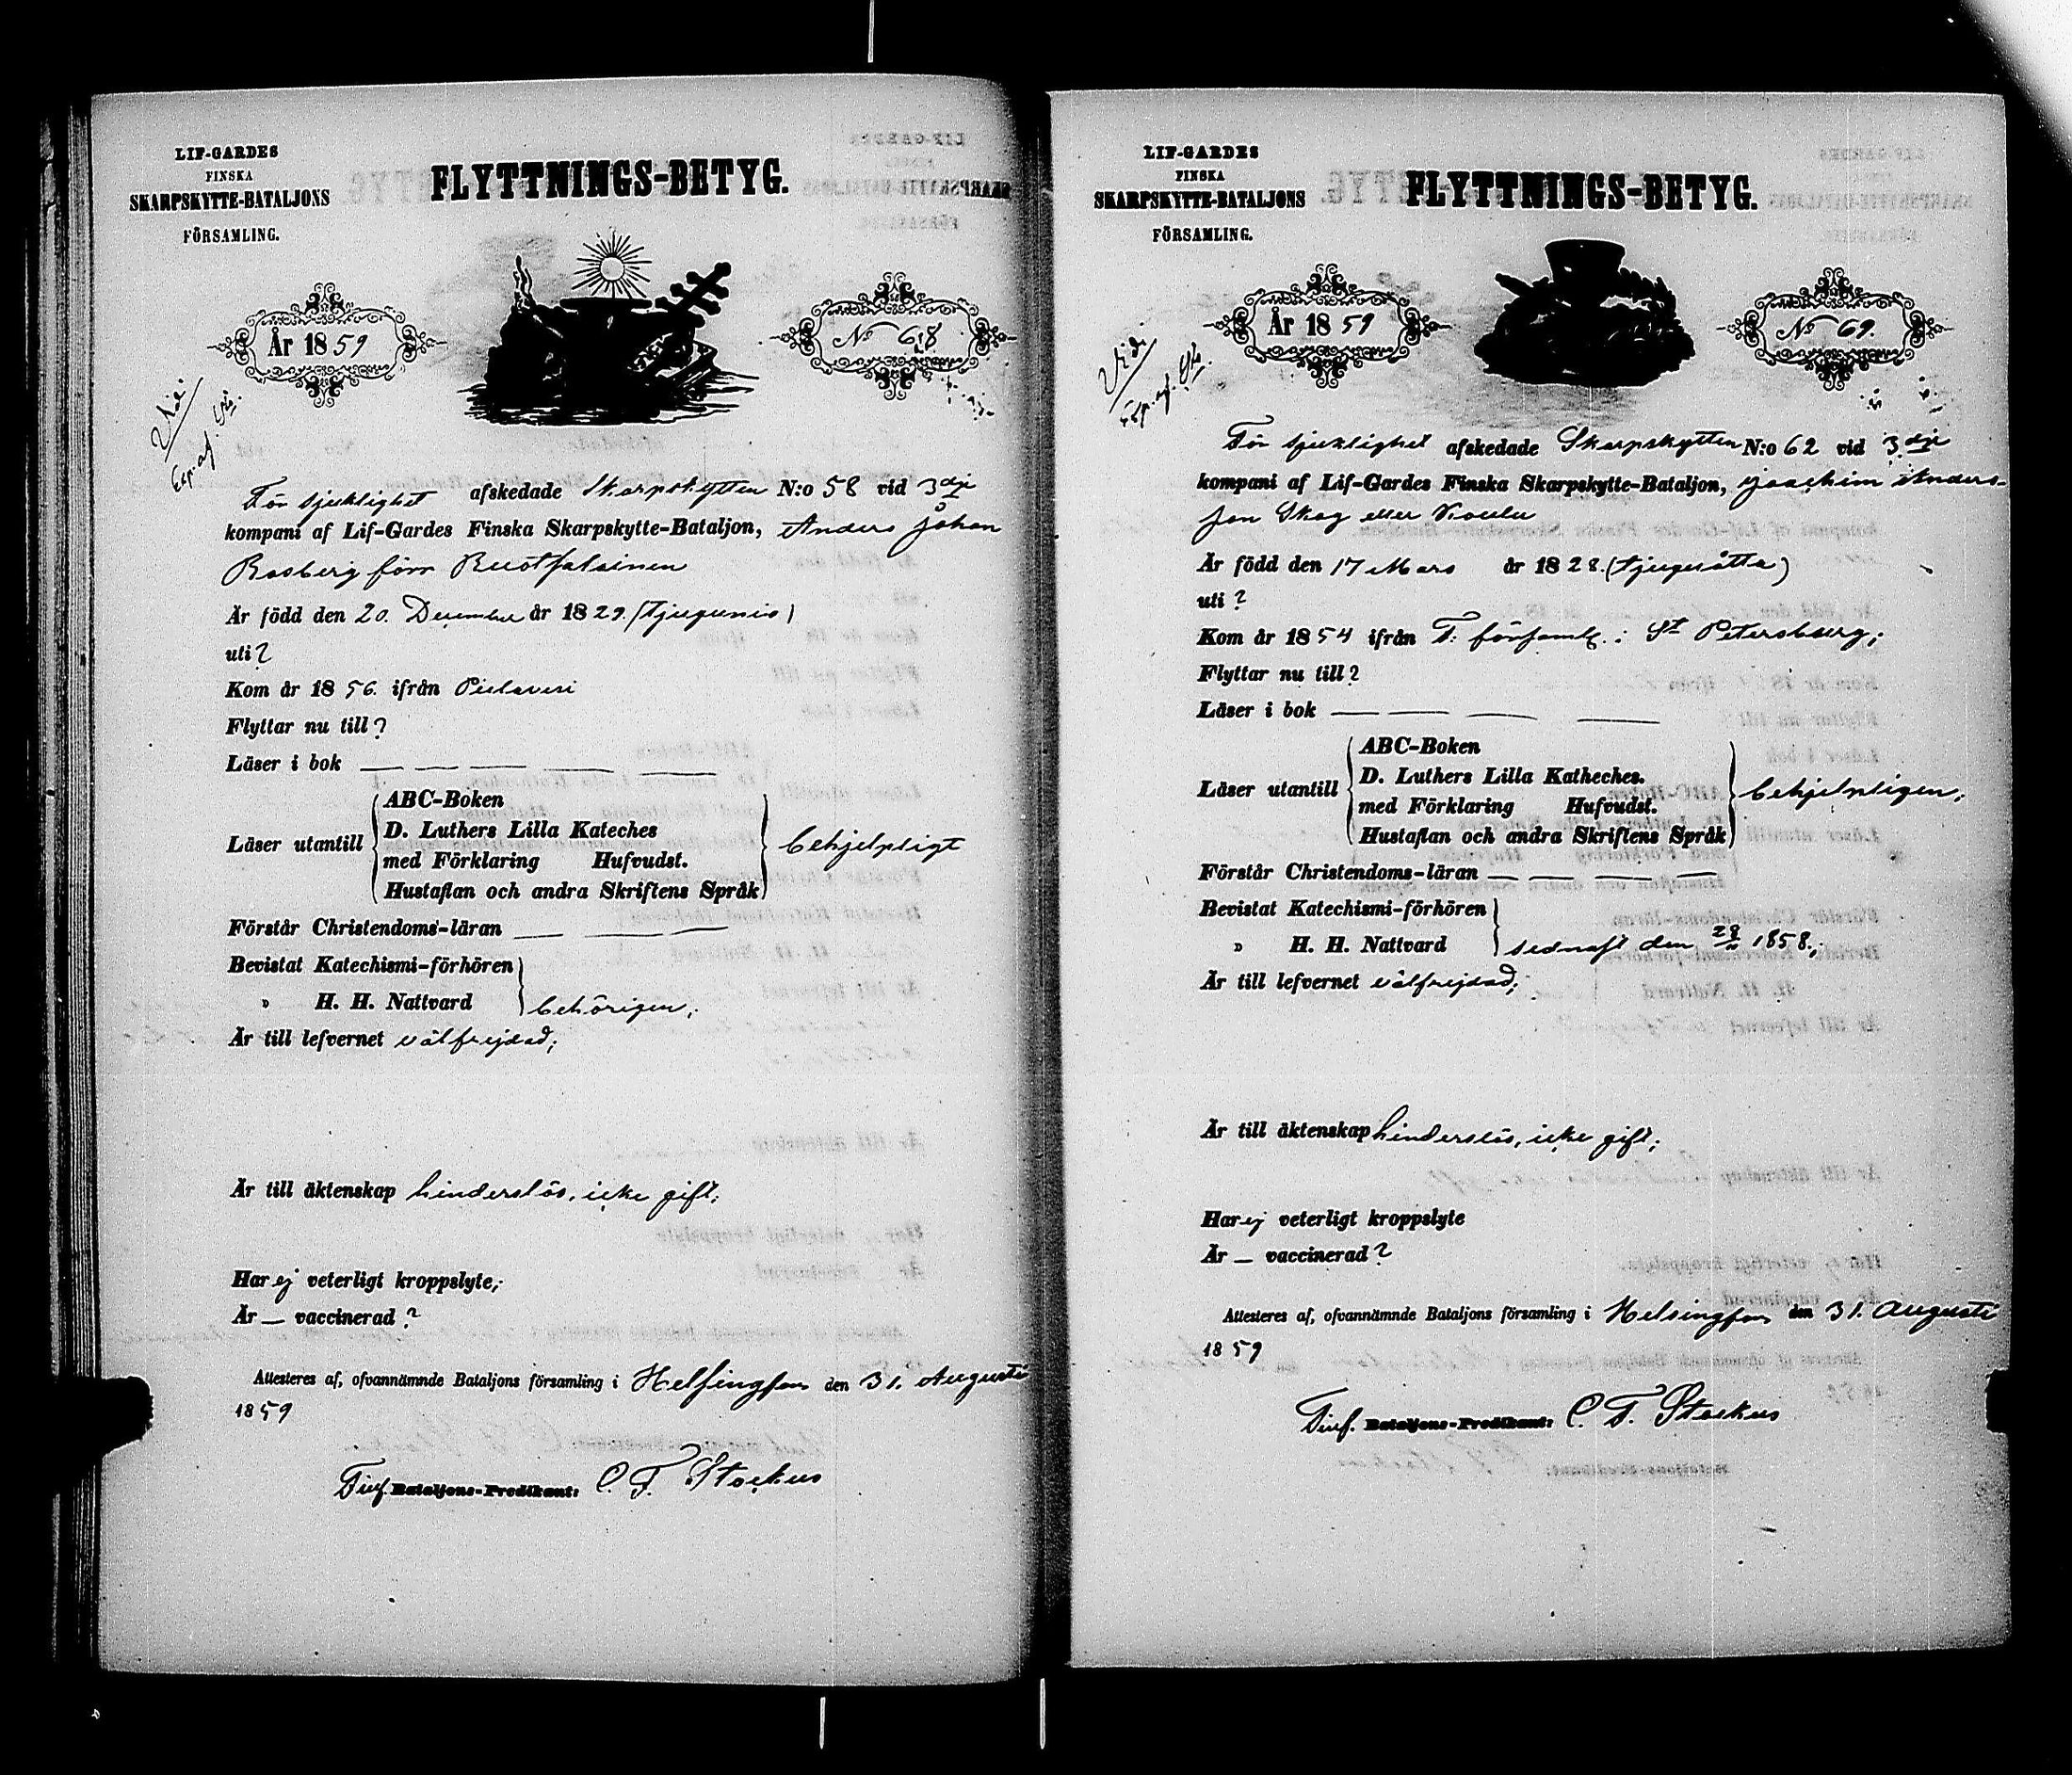 LIF-GARDES
FINSKA
SKARPSKYTTE-BATALJONS
FÖRSAMLING.
FLYTTNINGS-BETYG.
År 1859
No 68
Vidi
Exp. af.
För sjuklighet afskedade Skarpskytten N:o 58 vid 3dje
kompani af Lif-Gardes Finska Skarpskytte-Bataljon, Anders Johan
Rosberg förr Ruotsalainen
Är född den 20. December år 1829. (tjugunio)
uti?
Kom år 1856. ifrån Pielavesi
Flyttar nu till?
Läser i bok — — — — —
Läser utantill
ABC-Boken
D. Luthers Lilla Kateches
med Förklaring Hufvudst.
Hustaflan och andra Skriftens Språk
behjelpligt
Förstår Christendoms-läran — — —
Bevistat Katechismi-förhören
" H. H. Nattvard
behörigen;
Är till lefvernet välfrejdad;
Är till äktenskap hinderslös, icke gift;
Har ej veterligt kroppslyte;
Är — vaccinerad?
Attesteres af, ofvannämnde Bataljons församling i Helsingfors den 31. Augusti
1859
Bataljons-Predikant: C. F. Stockus
LIF-GARDES
FINSKA
SKARPSKYTTE-BATAILJONS
FÖRSAMLING.
FLYTTNINGS-BETYG.
År 1859
No 69.
Vidi
Exp. af.
För sjuklighet afskedade Skarpskytten N:o 62 vid 3dje
kompani af Lif-Gardes Finska Skarpskytte-Bataljon, Joachim Anders-
son Skog eller
Är född den 17 Mars år 1828. (tjuguåtta)
uti?
Kom år 1854 ifrån F: församl. i St Petersburg;
Flyttar nu till?
Läser i bok — — — —
Läser utantill
ABC-Boken
D. Luthers Lilla Katheches.
med Förklaring Hufvudst.
Hustaflan och andra Skriftens Språk
behjelpligen;
Förstår Christendoms-läran — — — —
Bevistat Katechismi-förhören
" H. H. Nattvard
sednast den 1858.;
Är till lefvernet välfrejdad;
Är till äktenskap hinderslös, icke gift;
Har ej veterligt kroppslyte
Är — vaccinerad?
Attesteres af, ofvannämnde Bataljons församling i Helsingfors den 31. Augusti
1859
Bataljons-Predikant: C. F. Stockus